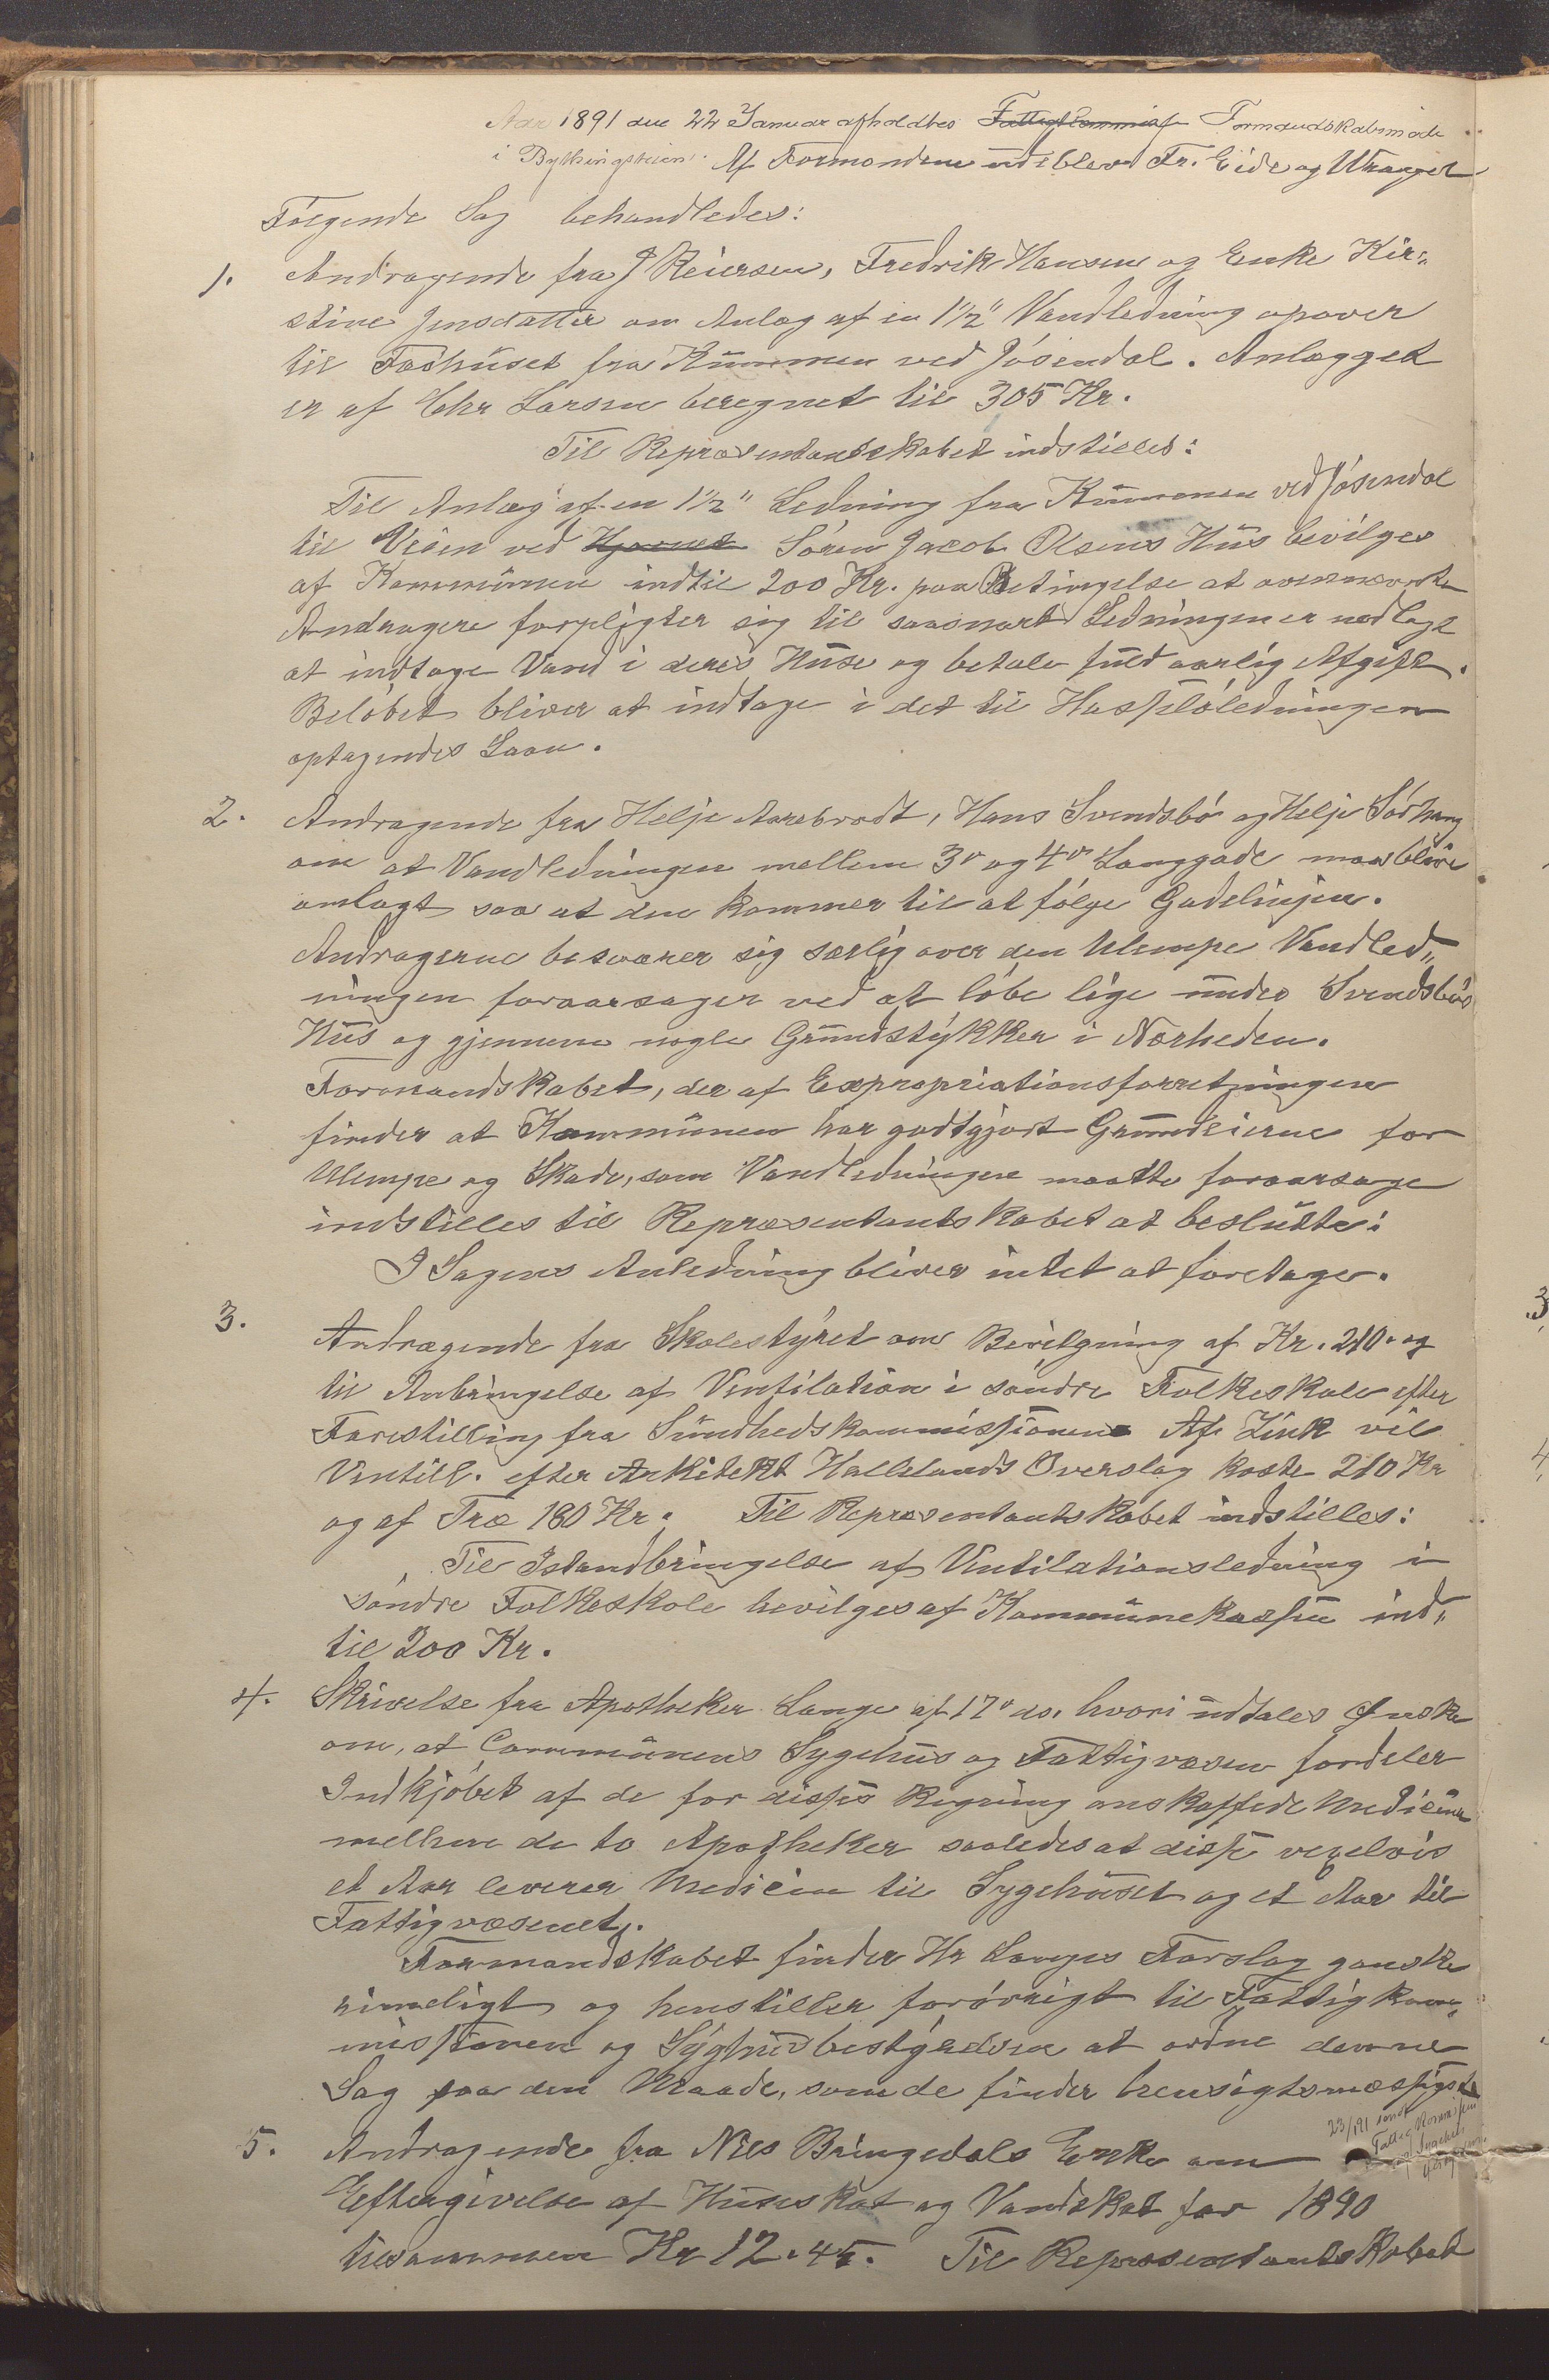 Aar 1891 den 22 Januar afholdtes Fattigkommiss Formandskabsmøde
i Bythingstuen. Af Formændene udeblev Fr. Eide og Wrangel
Følgende Sag behandledes:
1. Andragende fra J Reiersen, Fredrik Hansen og Enke Kir„
stine Jensdatter om Anlæg af en 1½" Vandledning opover
til Fæhuset fra Kummen ved Jøsendal. Anlægget
er af Chr Larsen beregnet til 305 Kr.
Til Repræsentantskabet indstilles:
Til Anlæg af en 1½" Ledning fra Kummen ved Jøsendal
til Veien ved Hjørnet Søren Jacob Olsens Hus bevilges
af Kommunen indtil 200 Kr. paa Betingelse at ovennævnte
Andragere forpligter sig til saasnart Ledningen er nedlagt
at indtage Vand i deres Huse og betale fuld aarlig Afgift.
Beløbet bliver at indtage i det til Hasseløledningen
optagendes Laan.
2. Andragende fra Helje Aarebrodt, Hans Svendsbø og Helje Sørhaug
om at Vandledningen mellem 3die og 4de Langgade maa blive
omlagt saa at den kommer til at følge Gadelinjen.
Andragerne besværer sig særlig over den Ulempe Vandled„
ningen foraarsager ved at løbe lige under Svendsbøs
Hus og gjennem nogle Grundstykker i Nærheden.
Formandskabet, der af Expropriationsforretningen
finder at Kommunen har godtgjort Grundeierne for
Ulempe og Skade, som Vandledningen maatte foraarsage
indstilles til Repræsentantskabet at beslutte:
I Sagens Anledning bliver intet at foretage.
3. Andragende fra Skolestyret om Bevilgning af Kr. 210. og
til Anbringelse af Ventilation i søndre Folkeskole efter
Forestilling fra Sundhedskommissionen. Af Zink vil
Ventill. efter Arkitekt Hallelands Overslag koste 210 Kr
og af Træ 180 Kr. Til Repræsentantskabet indstilles:
Til Istandbringelse af Ventilationsledning i
søndre Folkeskole bevilges af Kommunekassen ind„
til 200 Kr.
4. Skrivelse fra Apotheker Lange af 17de ds. hvori udtales Ønske
om, at Communens Sygehus og Fattigvæsen fordeler
Indkjøbet af de for disses Regning anskaffede Mediciner
mellem de to Apotheker saaledes at disse vexelvis
et Aar leverer Medicin til Sygehuset og et Aar til
Fattigvæsenet.
Formandskabet finder Hr Langes Forslag ganske
rimeligt og henstiller forøvrigt til Fattigkom„
missionen og Sygehusbestyrelsen at ordne denne
Sag paa den Maade, som de finder hensigtsmæssigst
23/1 91 sendt
Fattig Kommissen
5. Andragende fra Nils Bringedals Enke om
Eftergivelse af Husskat og Vandskat for 1890
tilsammen Kr 12.45. Til Repræsentantskabet